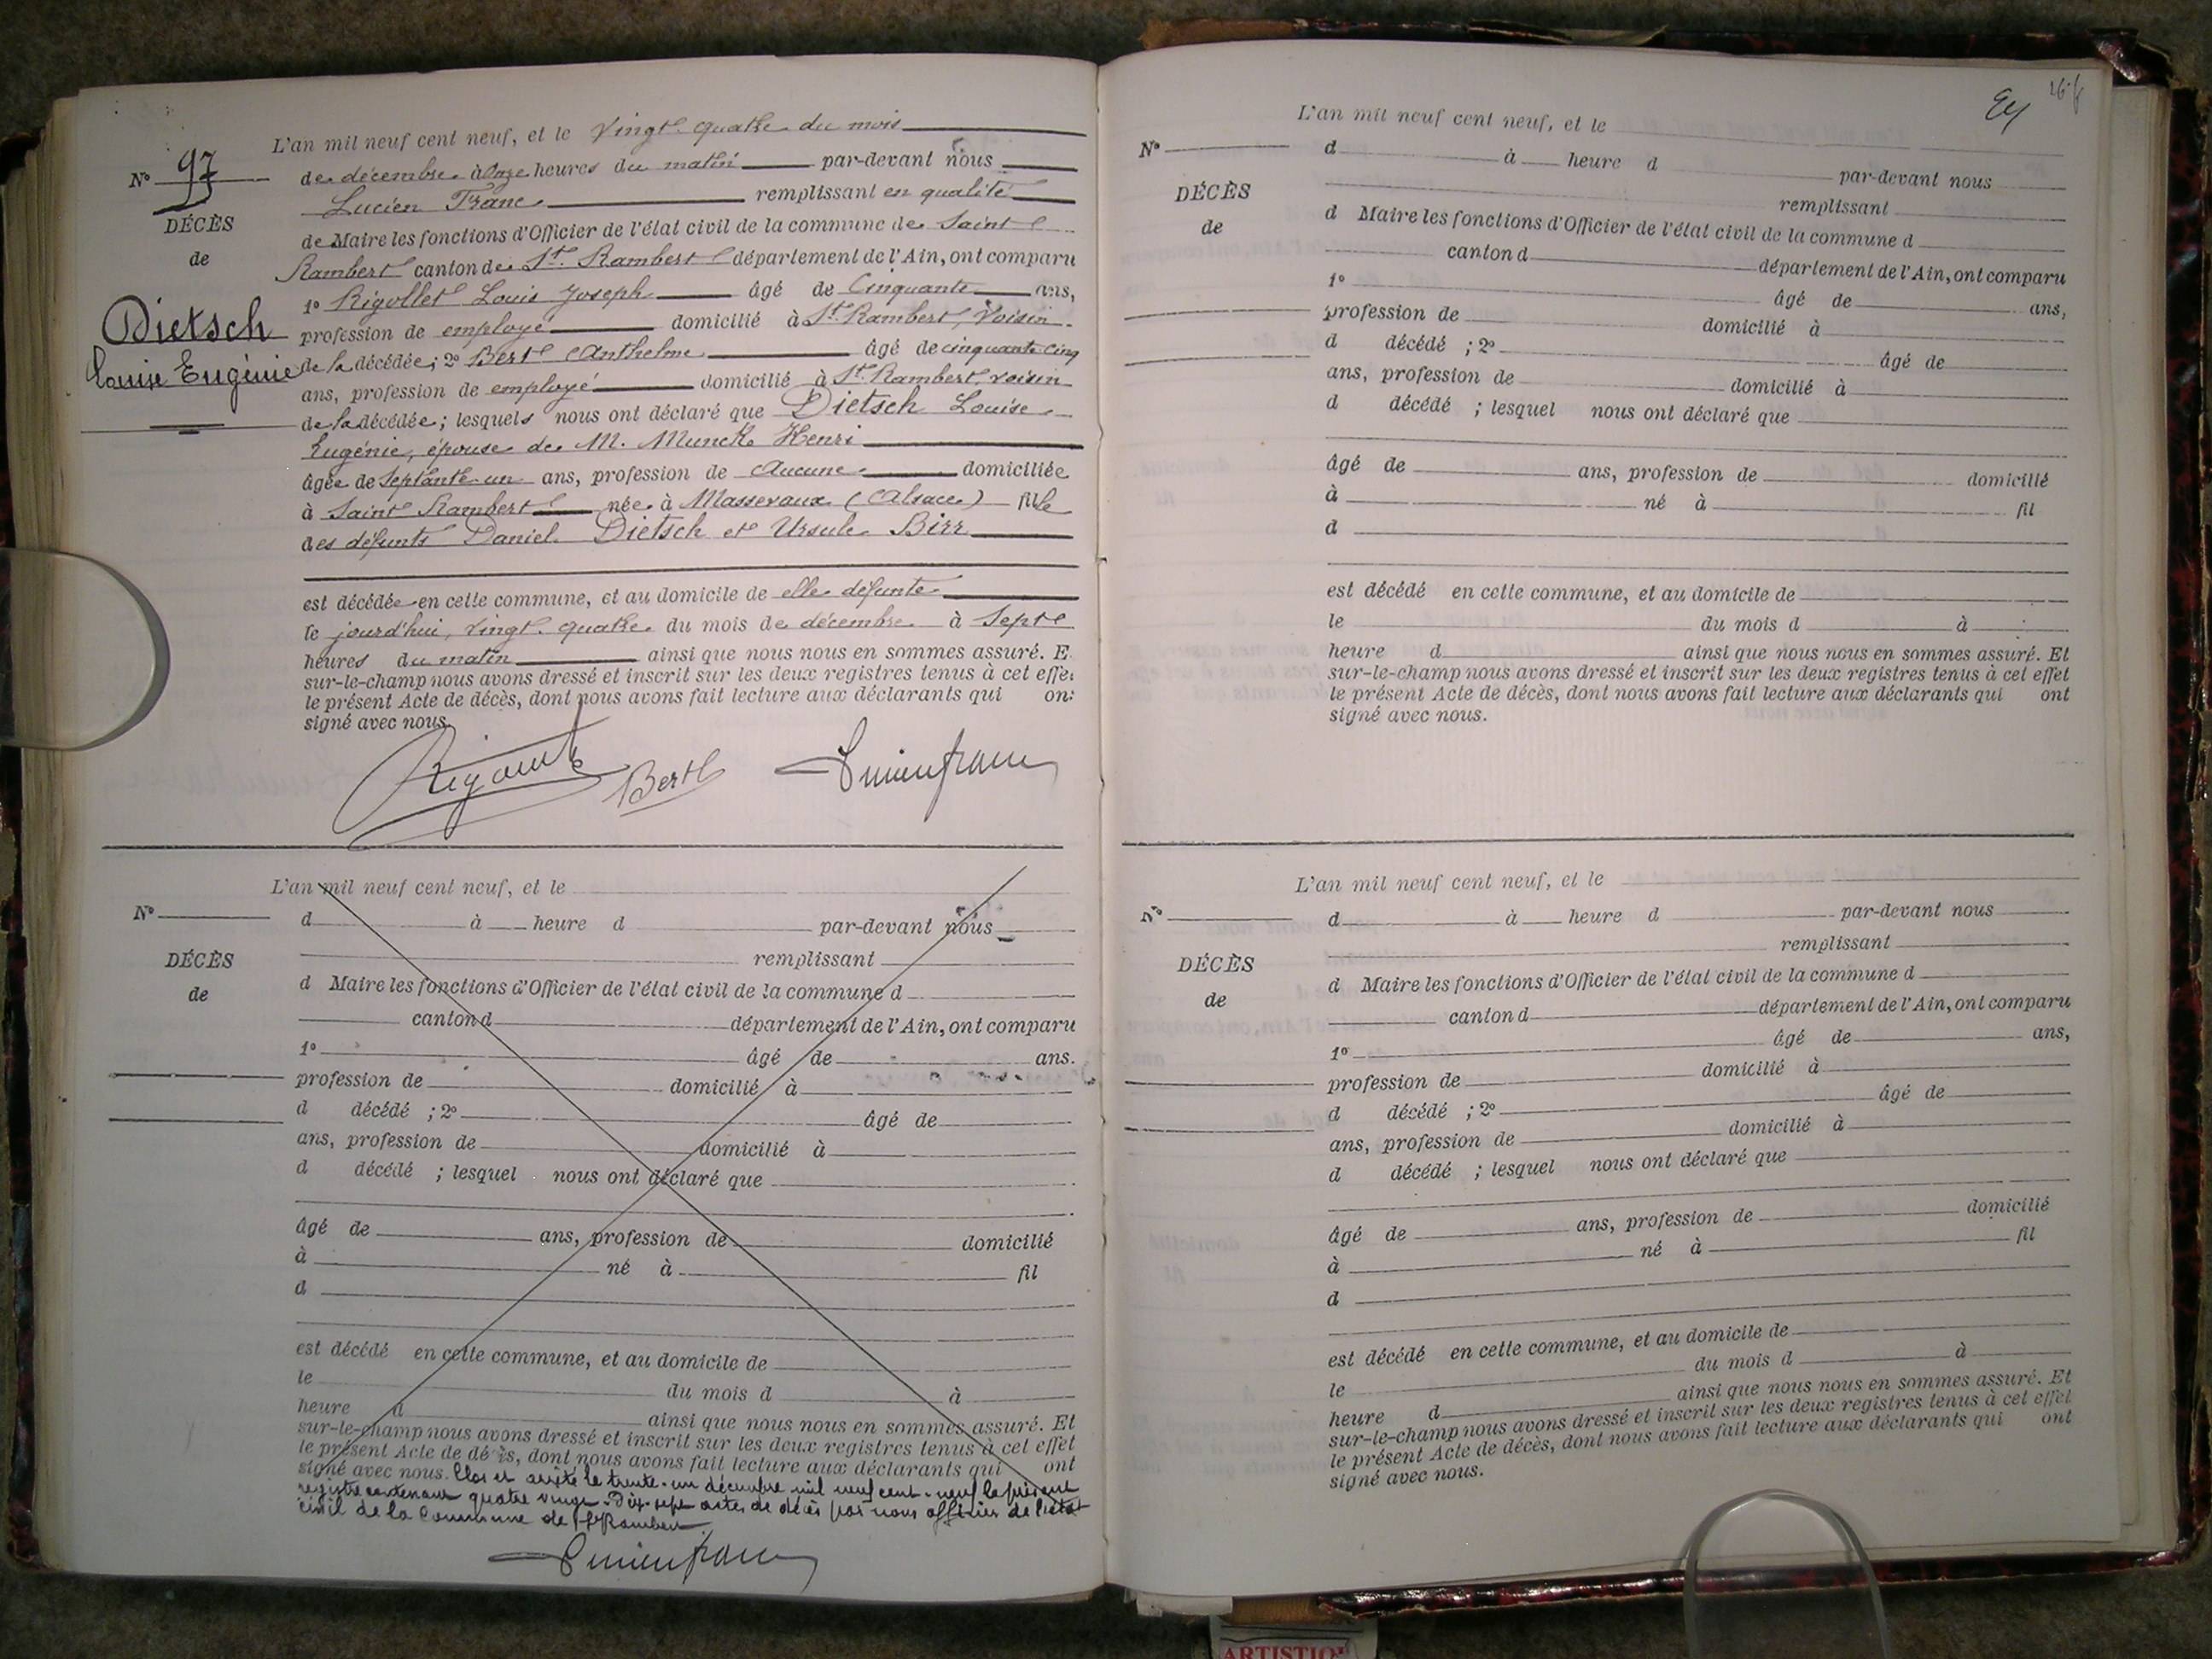 L'an mil neuf cent neuf, et le vingt-quatre du mois
No 97
de décembre à Onze heures du matin par-devant nous
Lucien Franc remplissant en qualité
DÉCÈS
de Maire les fonctions d'Officier de l'état civil de la commune de Saint
de
Rambert canton de St. Rambert département de l'Ain, ont comparu
1o Rigollet Louis Joseph âgé de Cinquante ans,
Dietsch
profession de employé domicilié à St. Rambert, voisin
Louise Eugénie
de la décédée; 2o Bert Anthelme âgé de cinquante cinq
ans, profession de employé domicilié à St. Rambert, voisin
de la décédée; lesquels nous ont déclaré que Dietsch Louise
Eugénie, épouse de M. Munck Henri
âgée de Septante-un ans, profession de Aucune domiciliée
à Saint Rambert née à Massevaux (Alsace) fille
des défunts Daniel Dietsch et Ursule Birr
est décédée en cette commune, et au domicile de elle défunte
le jourd'hui, vingt-quatre du mois de décembre à Sept
heures du matin ainsi que nous nous en sommes assuré. E
sur-le-champ nous avons dressé et inscrit sur les deux registres tenus à cet effe
le présent Acte de décès, dont nous avons fait lecture aux déclarants qui on
signé avec nous
Bert Lucien franc
L'an mil neuf cent neuf, et le
No
d à heure d par-devant nous
remplissant
DÉCÈS
d Maire les fonctions d'Officier de l'état civil de la commune d
de
canton d département de l'Ain, ont comparu
1o âgé de ans.
profession de domicilié à
d décédé ; 2o âgé de
ans, profession de domicilié à
d décédé ; lesquel nous ont déclaré que
âgé de ans, profession de domicilié
à né à fil
d
est décédé en cette commune, et au domicile de
le du mois d à
heure d ainsi que nous nous en sommes assuré. Et
sur-le-champ nous avons dressé et inscrit sur les deux registres tenus à cet effet
le présent Acte de décès, dont nous avons fait lecture aux déclarants qui ont
signé avec nous. Clos et arrêté le trente-un décembre mil neuf cent-neuf le présent
registre contenant quatre vingt-Dix-sept actes de décès par nous officier de l'état
civil de la Commune de St Rambert
Lucien franc
L'an mil neuf cent neuf, et le
No
d à heure d
par-devant nous
DÉCÈS
remplissant
de
d Maire les fonctions d'Officier de l'état civil de la commune d
canton d département de l'Ain, ont comparu
1o âgé de ans,
profession de domicilié à
d décédé ; 2o âgé de
ans, profession de domicilié à
d décédé ; lesquel nous ont déclaré que
âgé de ans, profession de domicilié
à né à fil
d
est décédé en cette commune, et au domicile de
le du mois d à
heure d ainsi que nous nous en sommes assuré. Et
sur-le-champ nous avons dressé et inscrit sur les deux registres tenus à cet effet
le présent Acte de décès, dont nous avons fait lecture aux déclarants qui ont
signé avec nous.
L'an mil neuf cent neuf, et le
No
d à heure d par-devant nous
remplissant
DÉCÈS
d Maire les fonctions d'Officier de l'état civil de la commune d
de
canton d département de l'Ain, ont comparu
1o âgé de ans,
profession de domicilié à
d décédé ; 2o âgé de
ans, profession de domicilié à
d décédé ; lesquel nous ont déclaré que
âgé de ans, profession de domicilié
à né à fil
d
est décédé en cette commune, et au domicile de
le du mois d à
heure d ainsi que nous nous en sommes assuré. Et
sur-le-champ nous avons dressé et inscrit sur les deux registres tenus à cet effet
le présent Acte de décès, dont nous avons fait lecture aux déclarants qui ont
signé avec nous.